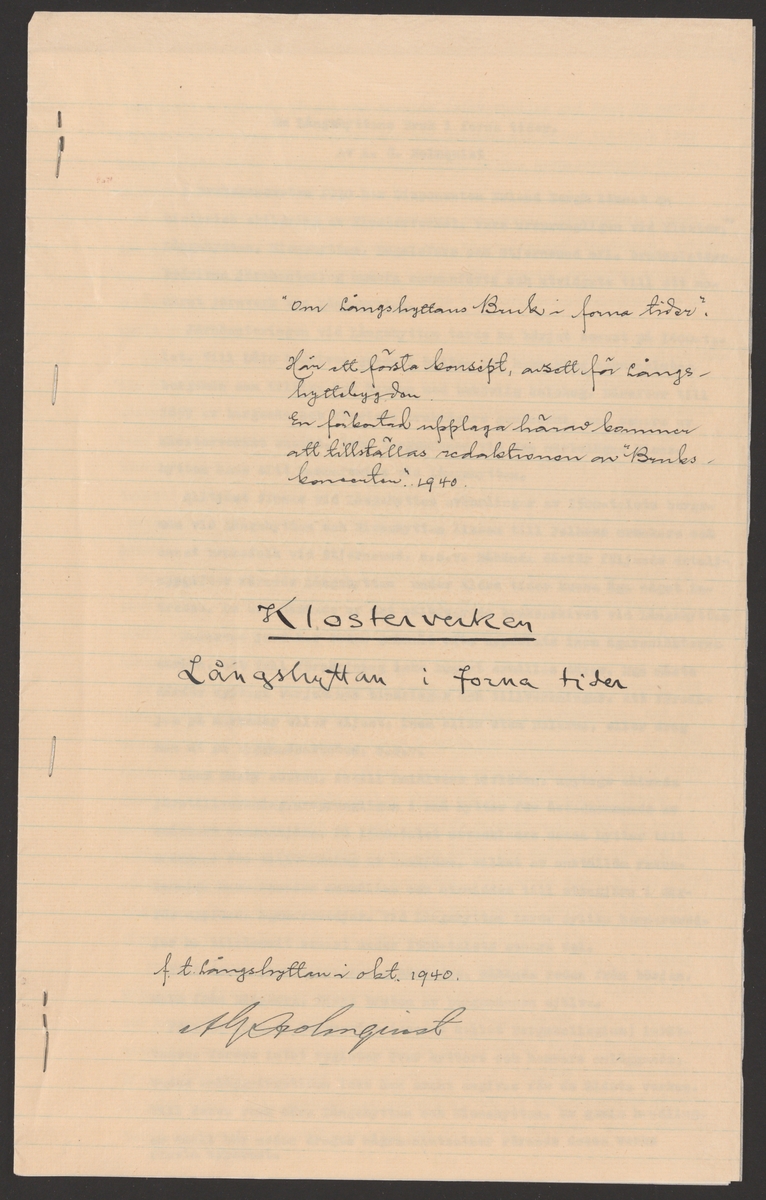 "Om Långshyttans Bruk i forna tider".
Här ett första koncept, avsett för Långs-
hyttebygden.
En förkortad upplaga härav kommer
att tillställas redaktionen av "Bruks-
koncerten". 1940.
Klosterverken
Långshyttan i forna tider
f. t. Långshyttan i okt. 1940.
A G Holmqvist